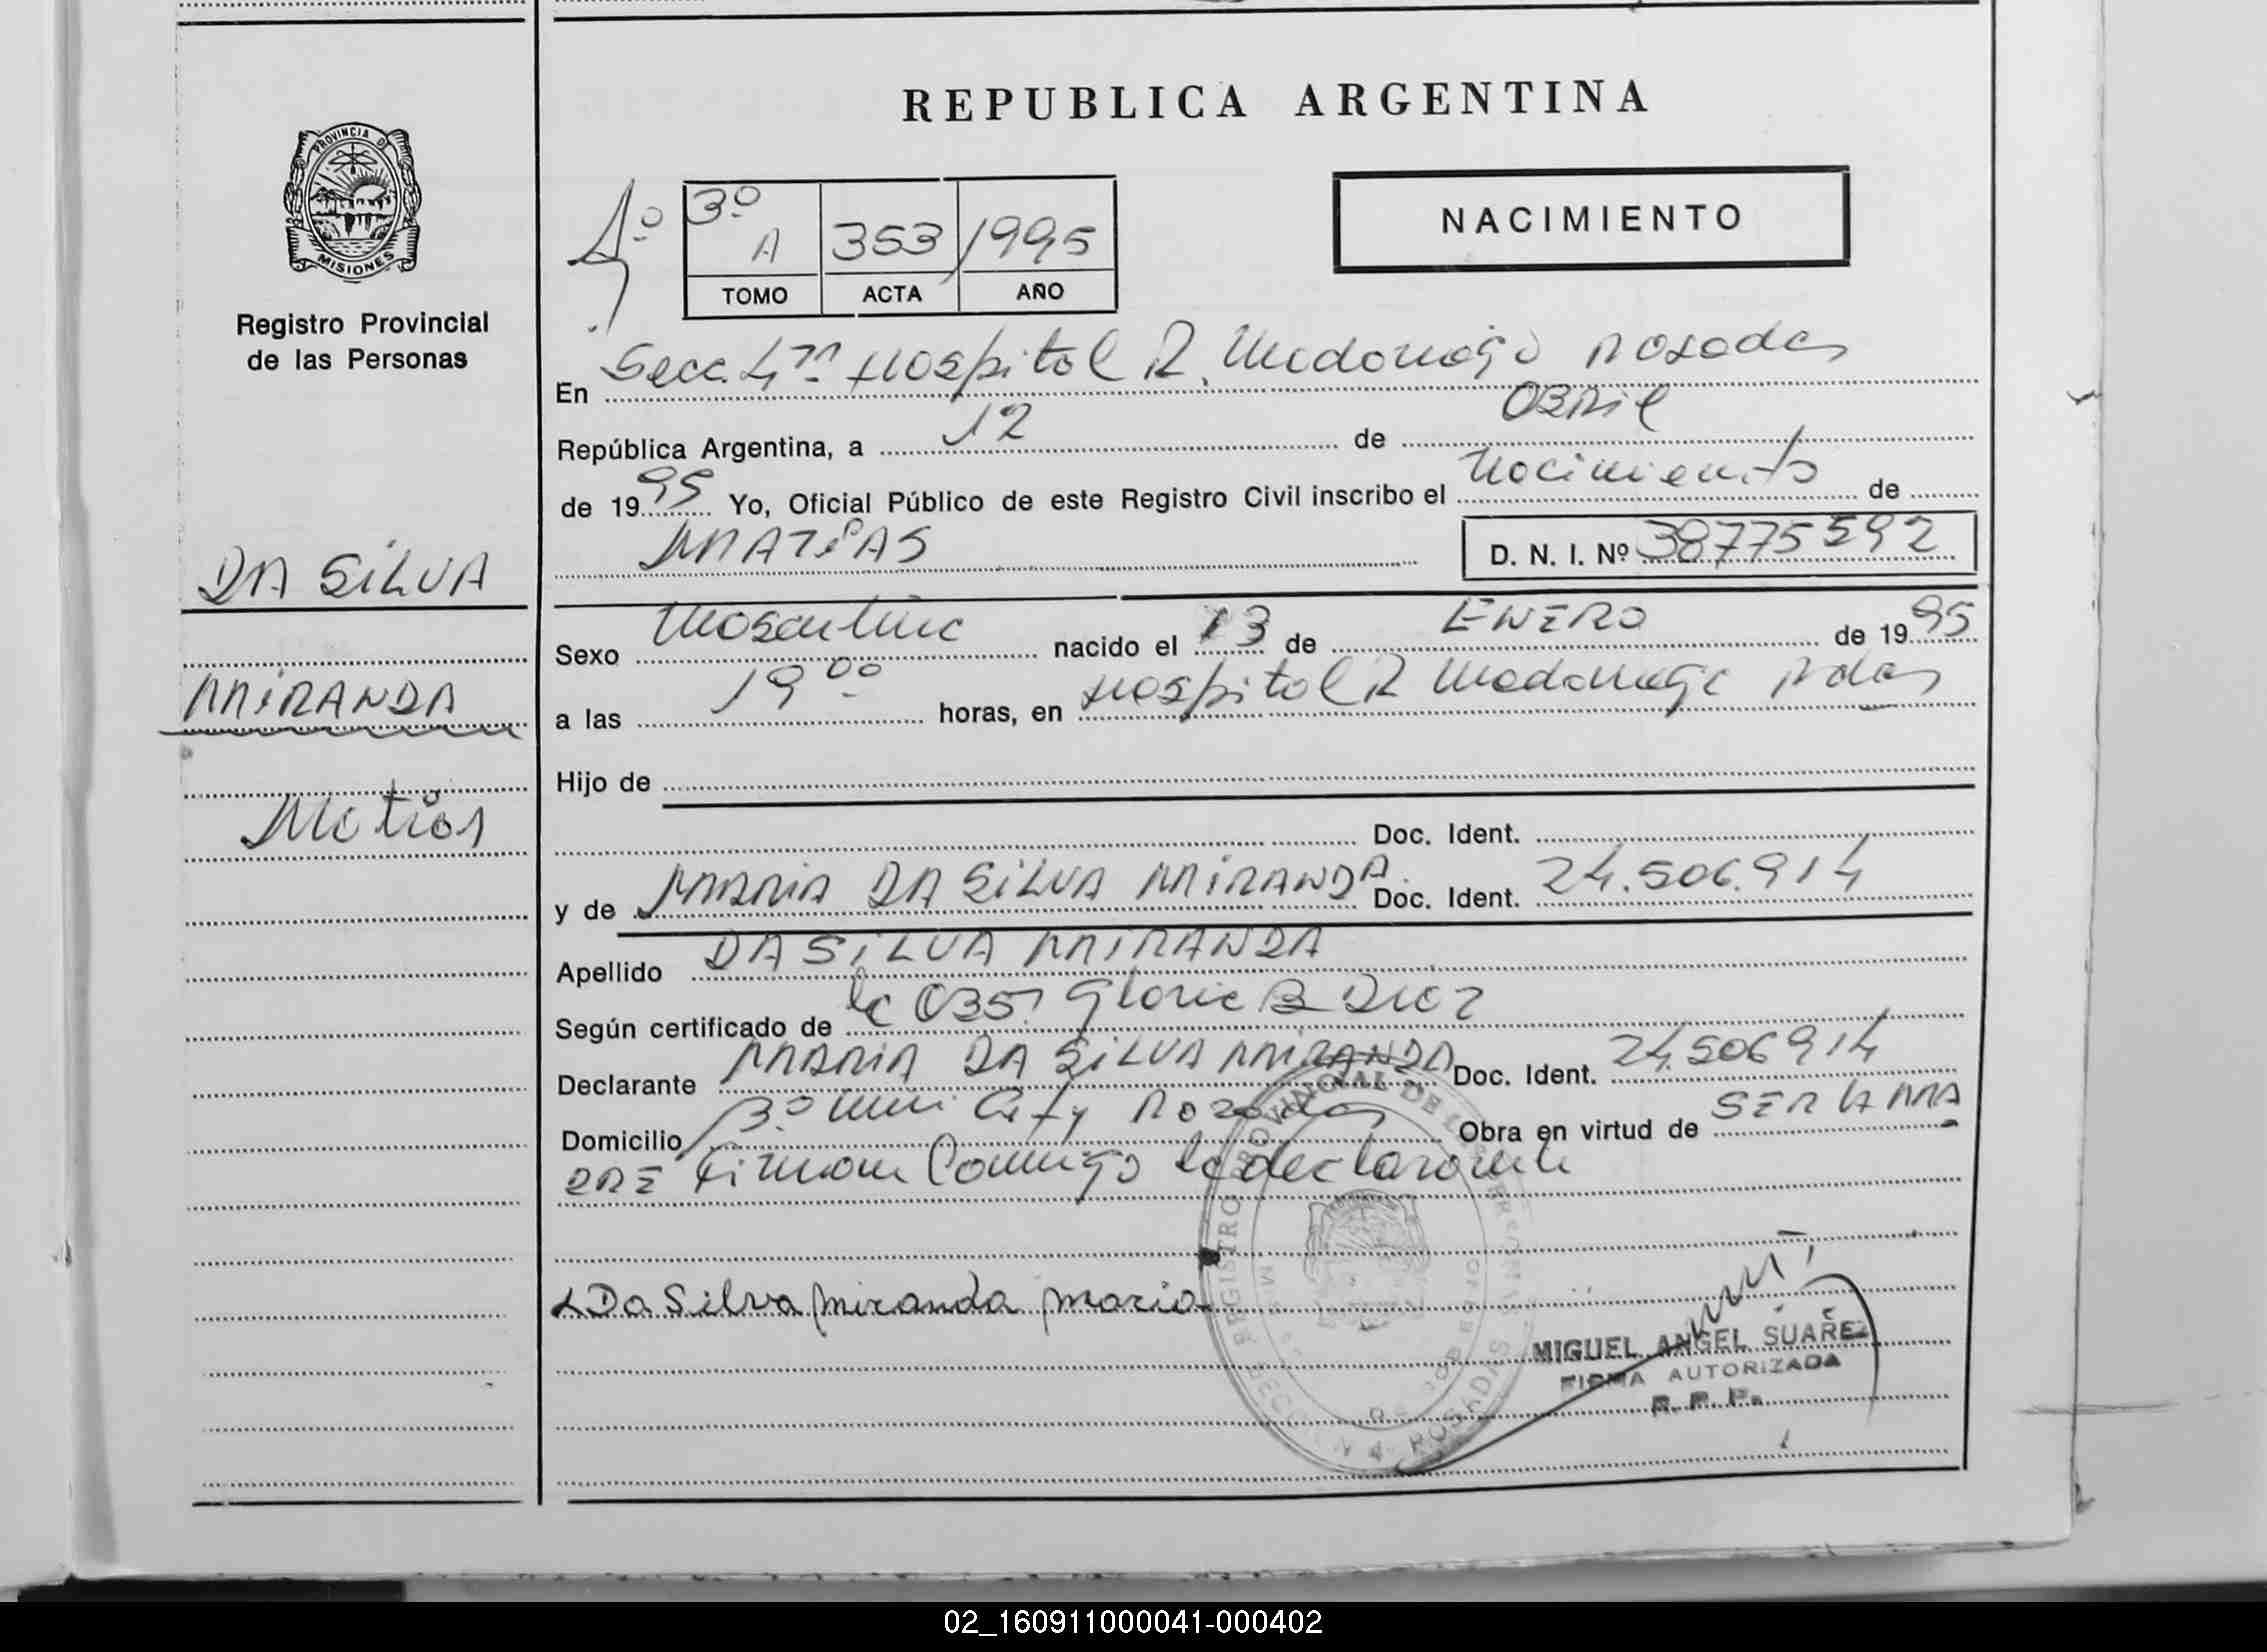 REPUBLICA ARGENTINA
PROVINCIA DE
MISIONES
Registro Provincial
de las Personas
4º
3º A 353 1995
TOMO ACTA AÑO
NACIMIENTO
En Secc. 4ta Hospital R. Madariaga Posadas
República Argentina, a 12 de ABRIL
de 1995 Yo, Oficial Público de este Registro Civil inscribo el Nacimiento de
MATIAS D. N. I. Nº 38775592
DA SILVA
MIRANDA
Matias
Sexo Masculino nacido el 13 de ENERO de 1995
a las 19 00 horas, en Hospital R Madariaga Pdas
Hijo de
Doc. Ident.
y de MARIA DA SILVA MIRANDA. Doc. Ident. 24.506.914
Apellido DA SILVA MIRANDA
Según certificado de la 035 Gloria B Diaz
Declarante MARIA DA SILVA MIRANDA Doc. Ident. 24.506914
Domicilio Bº City Posadas Obra en virtud de SER LA MA
DRE Firman Conmigo la declarante
Da Silva Miranda Maria
REGISTRO PROVINCIAL DE LAS PERSONAS
SECCION 4 POSADAS
MIGUEL ANGEL SUAREZ
FIRMA AUTORIZADA
R. P. P.
02_160911000041-000402